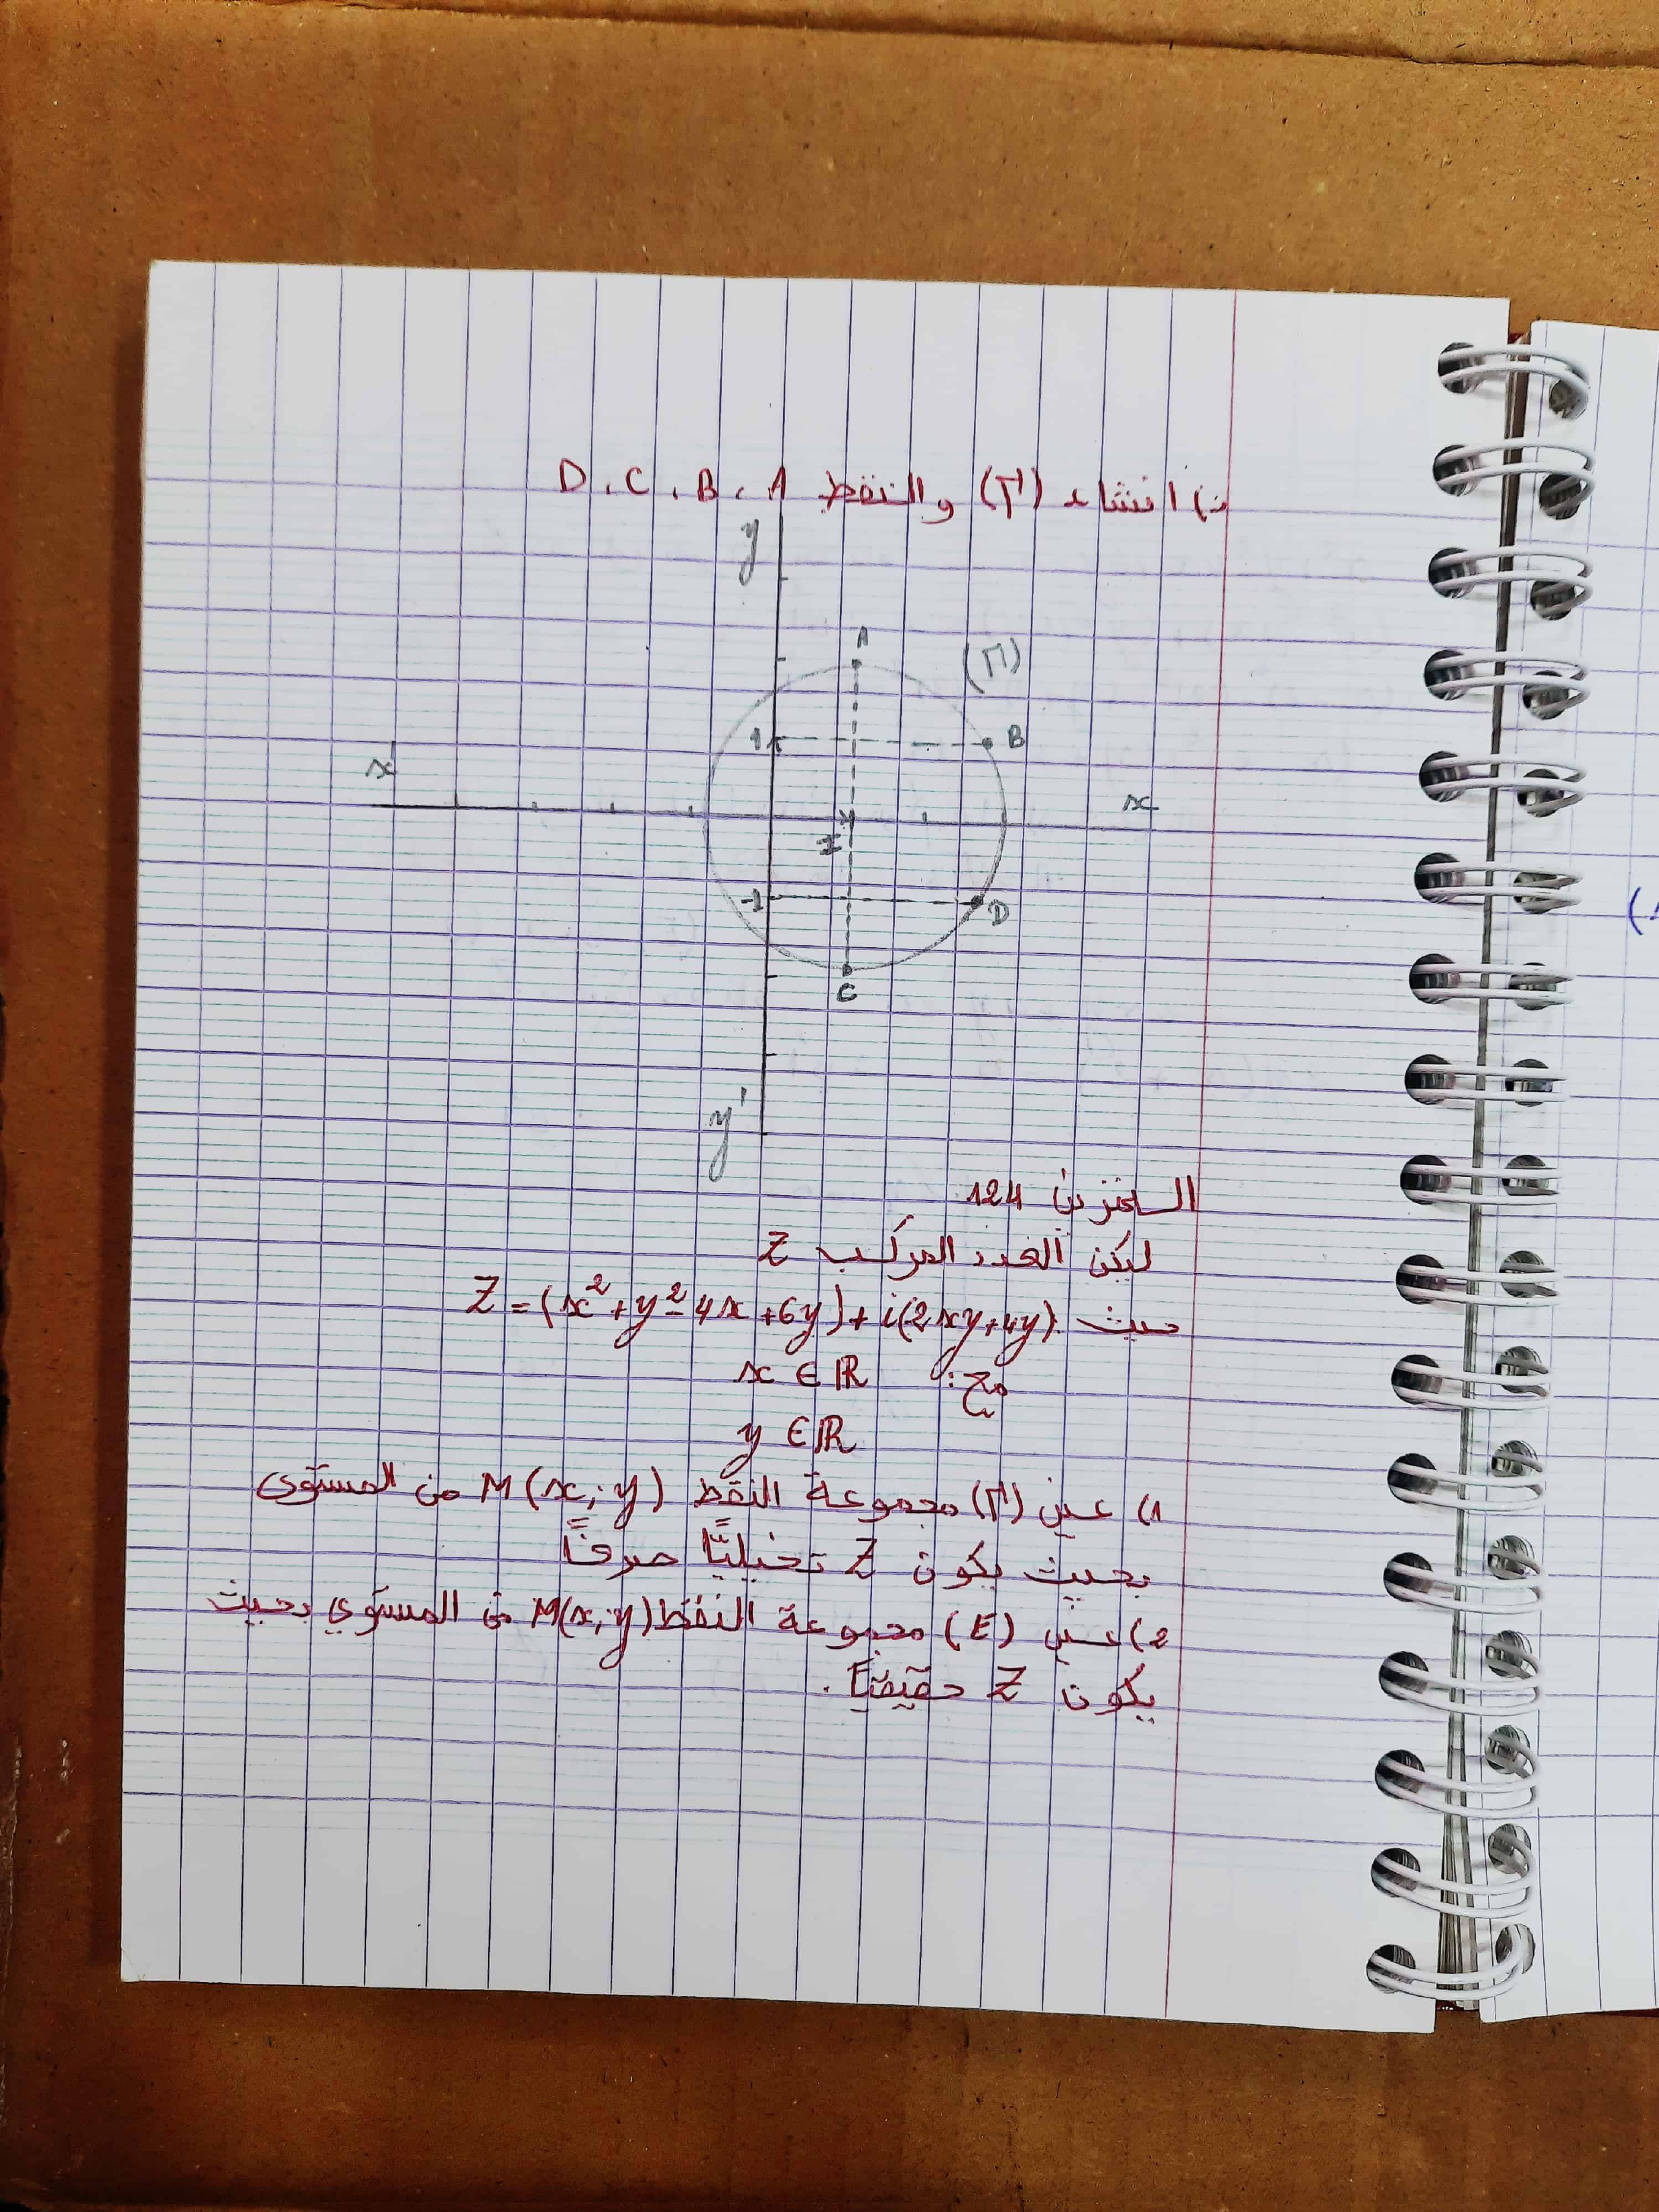 ت) انشاء (Γ) والنقط D، C، B، A
y
A
(Γ)
1
B
x'
x
I
-1
D
C
y'
التمرين 124
ليكن العدد المركب Z
حيث Z = (x²+y²-4x+6y)+i(2xy+4y)
مع: x ∈ ℝ
y ∈ ℝ
1) عين (Γ) مجموعة النقط M(x;y) من المستوى
بحيث يكون Z تخيليًّا صرفًا
2) عين (E) مجموعة النقط M(x;y) من المستوي بحيث
يكون Z حقيقيًا.